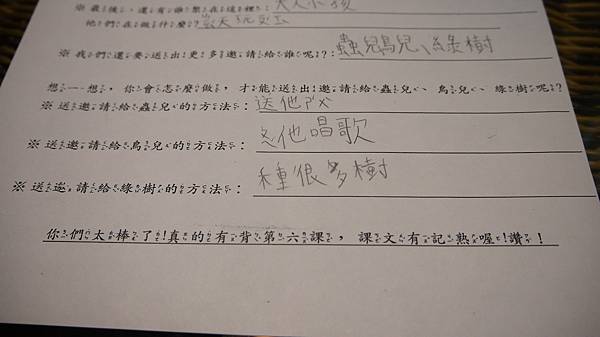 ※ 最後，還有誰聚在這裡： 大人小孩
他們在做什麼？ 聊天玩
※ 我們還要送出更多邀請給誰呢？： 蟲兒鳥兒、綠樹
想一想，你會怎麼做，才能送出邀請給蟲兒、鳥兒、綠樹呢？
※ 送邀請給蟲兒的方法： 送他
※ 送邀請給鳥兒的方法： 他唱歌
※ 送邀請給綠樹的方法： 種很多樹
你們太棒了！真的有背第六課，課文有記熟喔！讚！